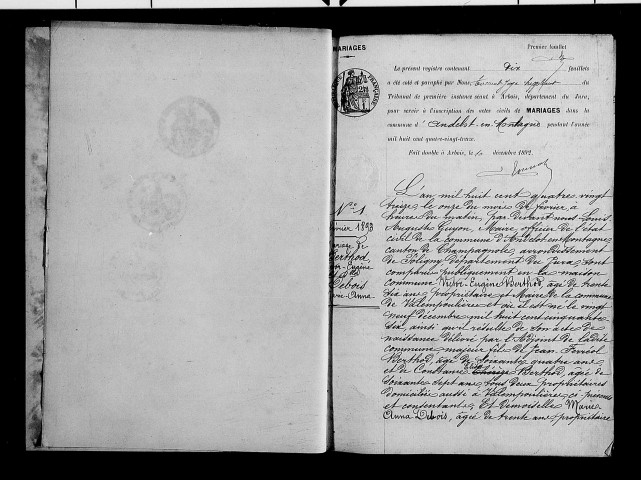 MARIAGES
Premier feuillet
Le présent registre contenant Dix feuillets
a été coté et paraphé par Nous, du
Tribunal de première instance séant à Arbois, département du Jura,
pour servir à l'inscription des actes civils de MARIAGES dans la
commune d'Andelot-en-Montagne pendant l'année
mil huit cent quatre-vingt-treize.
Fait double à Arbois, le décembre 1892
No 1
février 1893
Berthod,
Eugène
Debois
Anna
L'an mil huit cent quatre vingt
treize le onze du mois de février à
heures du matin, par devant nous Louis
Auguste Guyon, Maire, officier de l'état
civil de la commune d'Andelot-en-Montagne
canton de Champagnole, arrondissement
de Poligny département du Jura, sont
comparus publiquement en la maison
commune Victor-Eugène Berthod, âgé de trente
six ans, propriétaire et Maire de la commune
de Valempoulières et où il est né le vingt
neuf décembre mil huit cent cinquante
six, ainsi qu'il résulte de son acte de
naissance délivré par l'Adjoint de ladite
commune, majeur fils de Jean Ferréol
Berthod, âgé de soixante quatre ans
et de Constance Berthod, âgée de
soixante sept ans, tous deux propriétaires
domiciliés aussi à Valempoulières, ci présents
et consentants, Et Demoiselle Marie
Anna Debois, âgée de trente ans, propriétaire